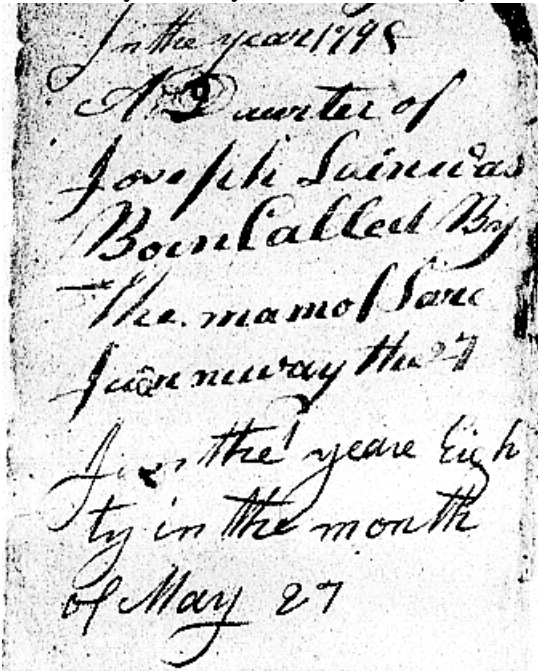 In the year 1795
A Dawrter of
Joseph Lain was
Born Called By
The mamof Sare
the 27
In the yeare Eigh
ty in the month
of May 27